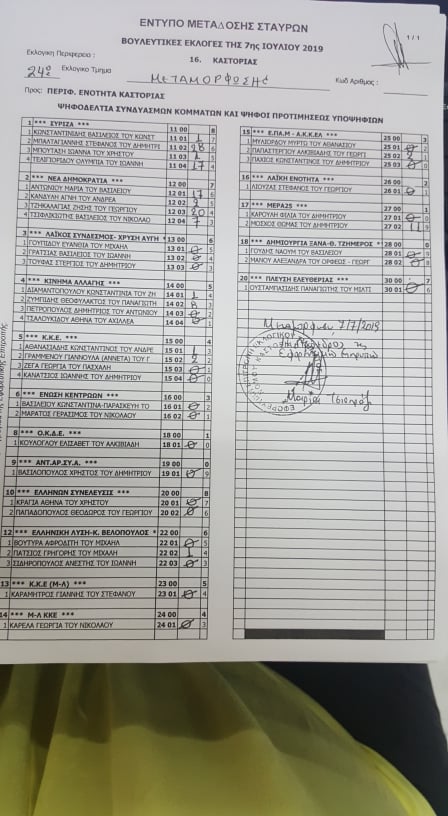 ΕΝΤΥΠΟ ΜΕΤΑΔΟΣΗΣ ΣΤΑΥΡΩΝ
1 / 1
ΒΟΥΛΕΥΤΙΚΕΣ ΕΚΛΟΓΕΣ ΤΗΣ 7ης ΙΟΥΛΙΟΥ 2019
Εκλογική Περιφέρεια : 16. ΚΑΣΤΟΡΙΑΣ
24ο Εκλογικό Τμήμα ΜΕΤΑΜΟΡΦΩΣΗΣ Κωδ Αριθμος :
Προς: ΠΕΡΙΦ. ΕΝΟΤΗΤΑ ΚΑΣΤΟΡΙΑΣ
ΨΗΦΟΔΕΛΤΙΑ ΣΥΝΔΥΑΣΜΩΝ ΚΟΜΜΑΤΩΝ ΚΑΙ ΨΗΦΟΙ ΠΡΟΤΙΜΗΣΕΩΣ ΥΠΟΨΗΦΙΩΝ
1 *** ΣΥΡΙΖΑ *** 11 00 8
1 ΚΩΝΣΤΑΝΤΙΝΙΔΗΣ ΒΑΣΙΛΕΙΟΣ ΤΟΥ ΚΩΝΣΤ 11 01 1 7
2 ΜΠΑΛΤΑΓΙΑΝΝΗΣ ΣΤΕΦΑΝΟΣ ΤΟΥ ΔΗΜΗΤΡΙ 11 02 28 6
3 ΜΠΟΥΤΑΣΗ ΙΩΑΝΝΑ ΤΟΥ ΧΡΗΣΤΟΥ 11 03 1 5
4 ΤΕΛΙΓΙΟΡΙΔΟΥ ΟΛΥΜΠΙΑ ΤΟΥ ΙΩΑΝΝΗ 11 04 17 4
2 *** ΝΕΑ ΔΗΜΟΚΡΑΤΙΑ *** 12 00 7
1 ΑΝΤΩΝΙΟΥ ΜΑΡΙΑ ΤΟΥ ΒΑΣΙΛΕΙΟΥ 12 01 17 6
2 ΚΑΝΔΥΛΗ ΑΓΝΗ ΤΟΥ ΑΝΔΡΕΑ 12 02 5
3 ΤΖΗΚΑΛΑΓΙΑΣ ΖΗΣΗΣ ΤΟΥ ΓΕΩΡΓΙΟΥ 12 03 20 4
4 ΤΣΙΦΛΙΚΙΩΤΗΣ ΒΑΣΙΛΕΙΟΣ ΤΟΥ ΝΙΚΟΛΑΟ 12 04 7 3
3 *** ΛΑΪΚΟΣ ΣΥΝΔΕΣΜΟΣ- ΧΡΥΣΗ ΑΥΓΗ * 13 00 6
1 ΓΟΥΠΙΔΟΥ ΕΥΑΝΘΙΑ ΤΟΥ ΜΙΧΑΗΛ 13 01 0 5
2 ΓΡΑΤΣΙΑΣ ΒΑΣΙΛΕΙΟΣ ΤΟΥ ΙΩΑΝΝΗ 13 02 0 4
3 ΤΟΥΦΑΣ ΣΤΕΡΓΙΟΣ ΤΟΥ ΔΗΜΗΤΡΙΟΥ 13 03 0 3
4 *** ΚΙΝΗΜΑ ΑΛΛΑΓΗΣ *** 14 00 5
1 ΔΙΑΜΑΝΤΟΠΟΥΛΟΥ ΚΩΝΣΤΑΝΤΙΝΙΑ ΤΟΥ ΖΗ 14 01 1 4
2 ΖΥΜΠΙΔΗΣ ΘΕΟΦΥΛΑΚΤΟΣ ΤΟΥ ΠΑΝΑΓΙΩΤΗ 14 02 8 3
3 ΠΕΤΡΟΠΟΥΛΟΣ ΔΗΜΗΤΡΙΟΣ ΤΟΥ ΑΝΤΩΝΙΟΥ 14 03 0 2
4 ΤΣΑΛΟΥΚΙΔΟΥ ΑΘΗΝΑ ΤΟΥ ΑΧΙΛΛΕΑ 14 04 0 1
5 *** Κ.Κ.Ε. *** 15 00 4
1 ΑΘΑΝΑΣΙΑΔΗΣ ΚΩΝΣΤΑΝΤΙΝΟΣ ΤΟΥ ΑΝΔΡΕ 15 01 1 3
2 ΓΡΑΜΜΕΝΟΥ ΓΙΑΝΝΟΥΛΑ (ΑΝΝΕΤΑ) ΤΟΥ Γ 15 02 2 2
3 ΖΕΓΑ ΓΕΩΡΓΙΑ ΤΟΥ ΠΑΣΧΑΛΗ 15 03 0 1
4 ΚΑΝΑΤΣΙΟΣ ΙΩΑΝΝΗΣ ΤΟΥ ΔΗΜΗΤΡΙΟΥ 15 04 0 0
6 *** ΕΝΩΣΗ ΚΕΝΤΡΩΩΝ *** 16 00 3
1 ΒΑΣΙΛΕΙΟΥ ΚΩΝΣΤΑΝΤΙΝΑ-ΠΑΡΑΣΚΕΥΗ ΤΟ 16 01 0 2
2 ΜΑΡΑΤΟΣ ΓΕΡΑΣΙΜΟΣ ΤΟΥ ΝΙΚΟΛΑΟΥ 16 02 0 1
8 *** Ο.Κ.Δ.Ε. *** 18 00 1
1 ΚΟΥΛΟΓΛΟΥ ΕΛΙΣΑΒΕΤ ΤΟΥ ΑΛΚΙΒΙΑΔΗ 18 01 0 0
9 *** ΑΝΤ.ΑΡ.ΣΥ.Α. *** 19 00 0
1 ΒΑΣΙΛΟΠΟΥΛΟΣ ΧΡΗΣΤΟΣ ΤΟΥ ΔΗΜΗΤΡΙΟΥ 19 01 0 9
10 *** ΕΛΛΗΝΩΝ ΣΥΝΕΛΕΥΣΙΣ *** 20 00 8
1 ΚΡΑΓΙΑ ΑΘΗΝΑ ΤΟΥ ΧΡΗΣΤΟΥ 20 01 0 7
2 ΠΑΠΑΔΟΠΟΥΛΟΣ ΘΕΟΔΩΡΟΣ ΤΟΥ ΓΕΩΡΓΙΟΥ 20 02 0 6
12 *** ΕΛΛΗΝΙΚΗ ΛΥΣΗ-Κ. ΒΕΛΟΠΟΥΛΟΣ * 22 00 6
1 ΒΟΥΤΥΡΑ ΑΦΡΟΔΙΤΗ ΤΟΥ ΜΙΧΑΗΛ 22 01 0 5
2 ΠΑΤΣΙΟΣ ΓΡΗΓΟΡΗΣ ΤΟΥ ΜΙΧΑΛΗ 22 02 1 4
3 ΣΙΔΗΡΟΠΟΥΛΟΣ ΑΝΕΣΤΗΣ ΤΟΥ ΙΩΑΝΝΗ 22 03 0 3
13 *** Κ.Κ.Ε (Μ-Λ) *** 23 00 5
1 ΚΑΡΑΜΗΤΡΟΣ ΓΙΑΝΝΗΣ ΤΟΥ ΣΤΕΦΑΝΟΥ 23 01 0 4
14 *** Μ-Λ ΚΚΕ *** 24 00 4
1 ΚΑΡΕΛΑ ΓΕΩΡΓΙΑ ΤΟΥ ΝΙΚΟΛΑΟΥ 24 01 0 3
15 *** Ε.ΠΑ.Μ - Α.Κ.Κ.ΕΛ *** 25 00 3
1 ΜΥΛΙΟΡΔΟΥ ΜΥΡΤΩ ΤΟΥ ΑΘΑΝΑΣΙΟΥ 25 01 0 2
2 ΠΑΠΑΣΤΕΡΓΙΟΥ ΑΛΚΙΒΙΑΔΗΣ ΤΟΥ ΓΕΩΡΓΙ 25 02 1
3 ΠΑΧΙΟΣ ΚΩΝΣΤΑΝΤΙΝΟΣ ΤΟΥ ΔΗΜΗΤΡΙΟΥ 25 03 0 0
16 *** ΛΑΪΚΗ ΕΝΟΤΗΤΑ *** 26 00 2
1 ΛΙΟΥΖΑΣ ΣΤΕΦΑΝΟΣ ΤΟΥ ΓΕΩΡΓΙΟΥ 26 01 0 1
17 *** ΜΕΡΑ25 *** 27 00 1
1 ΚΑΡΟΥΛΗ ΦΙΛΙΑ ΤΟΥ ΔΗΜΗΤΡΙΟΥ 27 01 0 0
2 ΜΟΣΧΟΣ ΘΩΜΑΣ ΤΟΥ ΔΗΜΗΤΡΙΟΥ 27 02 9
18 *** ΔΗΜΙΟΥΡΓΙΑ ΞΑΝΑ-Θ. ΤΖΗΜΕΡΟΣ ** 28 00 0
1 ΓΟΥΔΗΣ ΝΑΟΥΜ ΤΟΥ ΒΑΣΙΛΕΙΟΥ 28 01 0 9
2 ΜΑΝΟΥ ΑΛΕΞΑΝΔΡΑ ΤΟΥ ΟΡΦΕΩΣ - ΓΕΩΡΓ 28 02 0 8
20 *** ΠΛΕΥΣΗ ΕΛΕΥΘΕΡΙΑΣ *** 30 00 7
1 ΟΥΣΤΑΜΠΑΣΙΔΗΣ ΠΑΝΑΓΙΩΤΗΣ ΤΟΥ ΜΙΛΤΙ 30 01 0 6
Μεταμόρφωση 7/7/2019
της
Εφορευτικής Επιτροπής
Μαρία